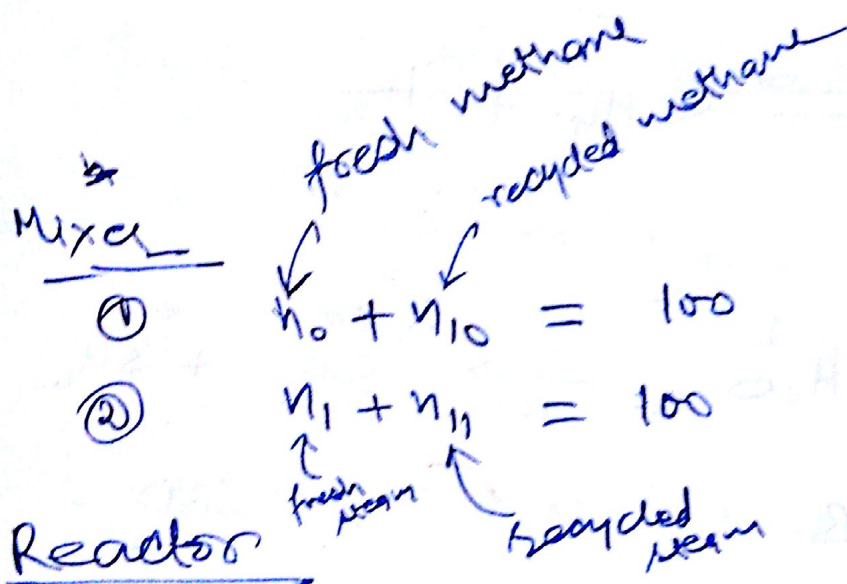 fresh methane
recycled methane
Mixer
① n₀ + n₁₀ = 100
② n₁ + n₁₁ = 100
fresh steam
recycled steam
Reactor